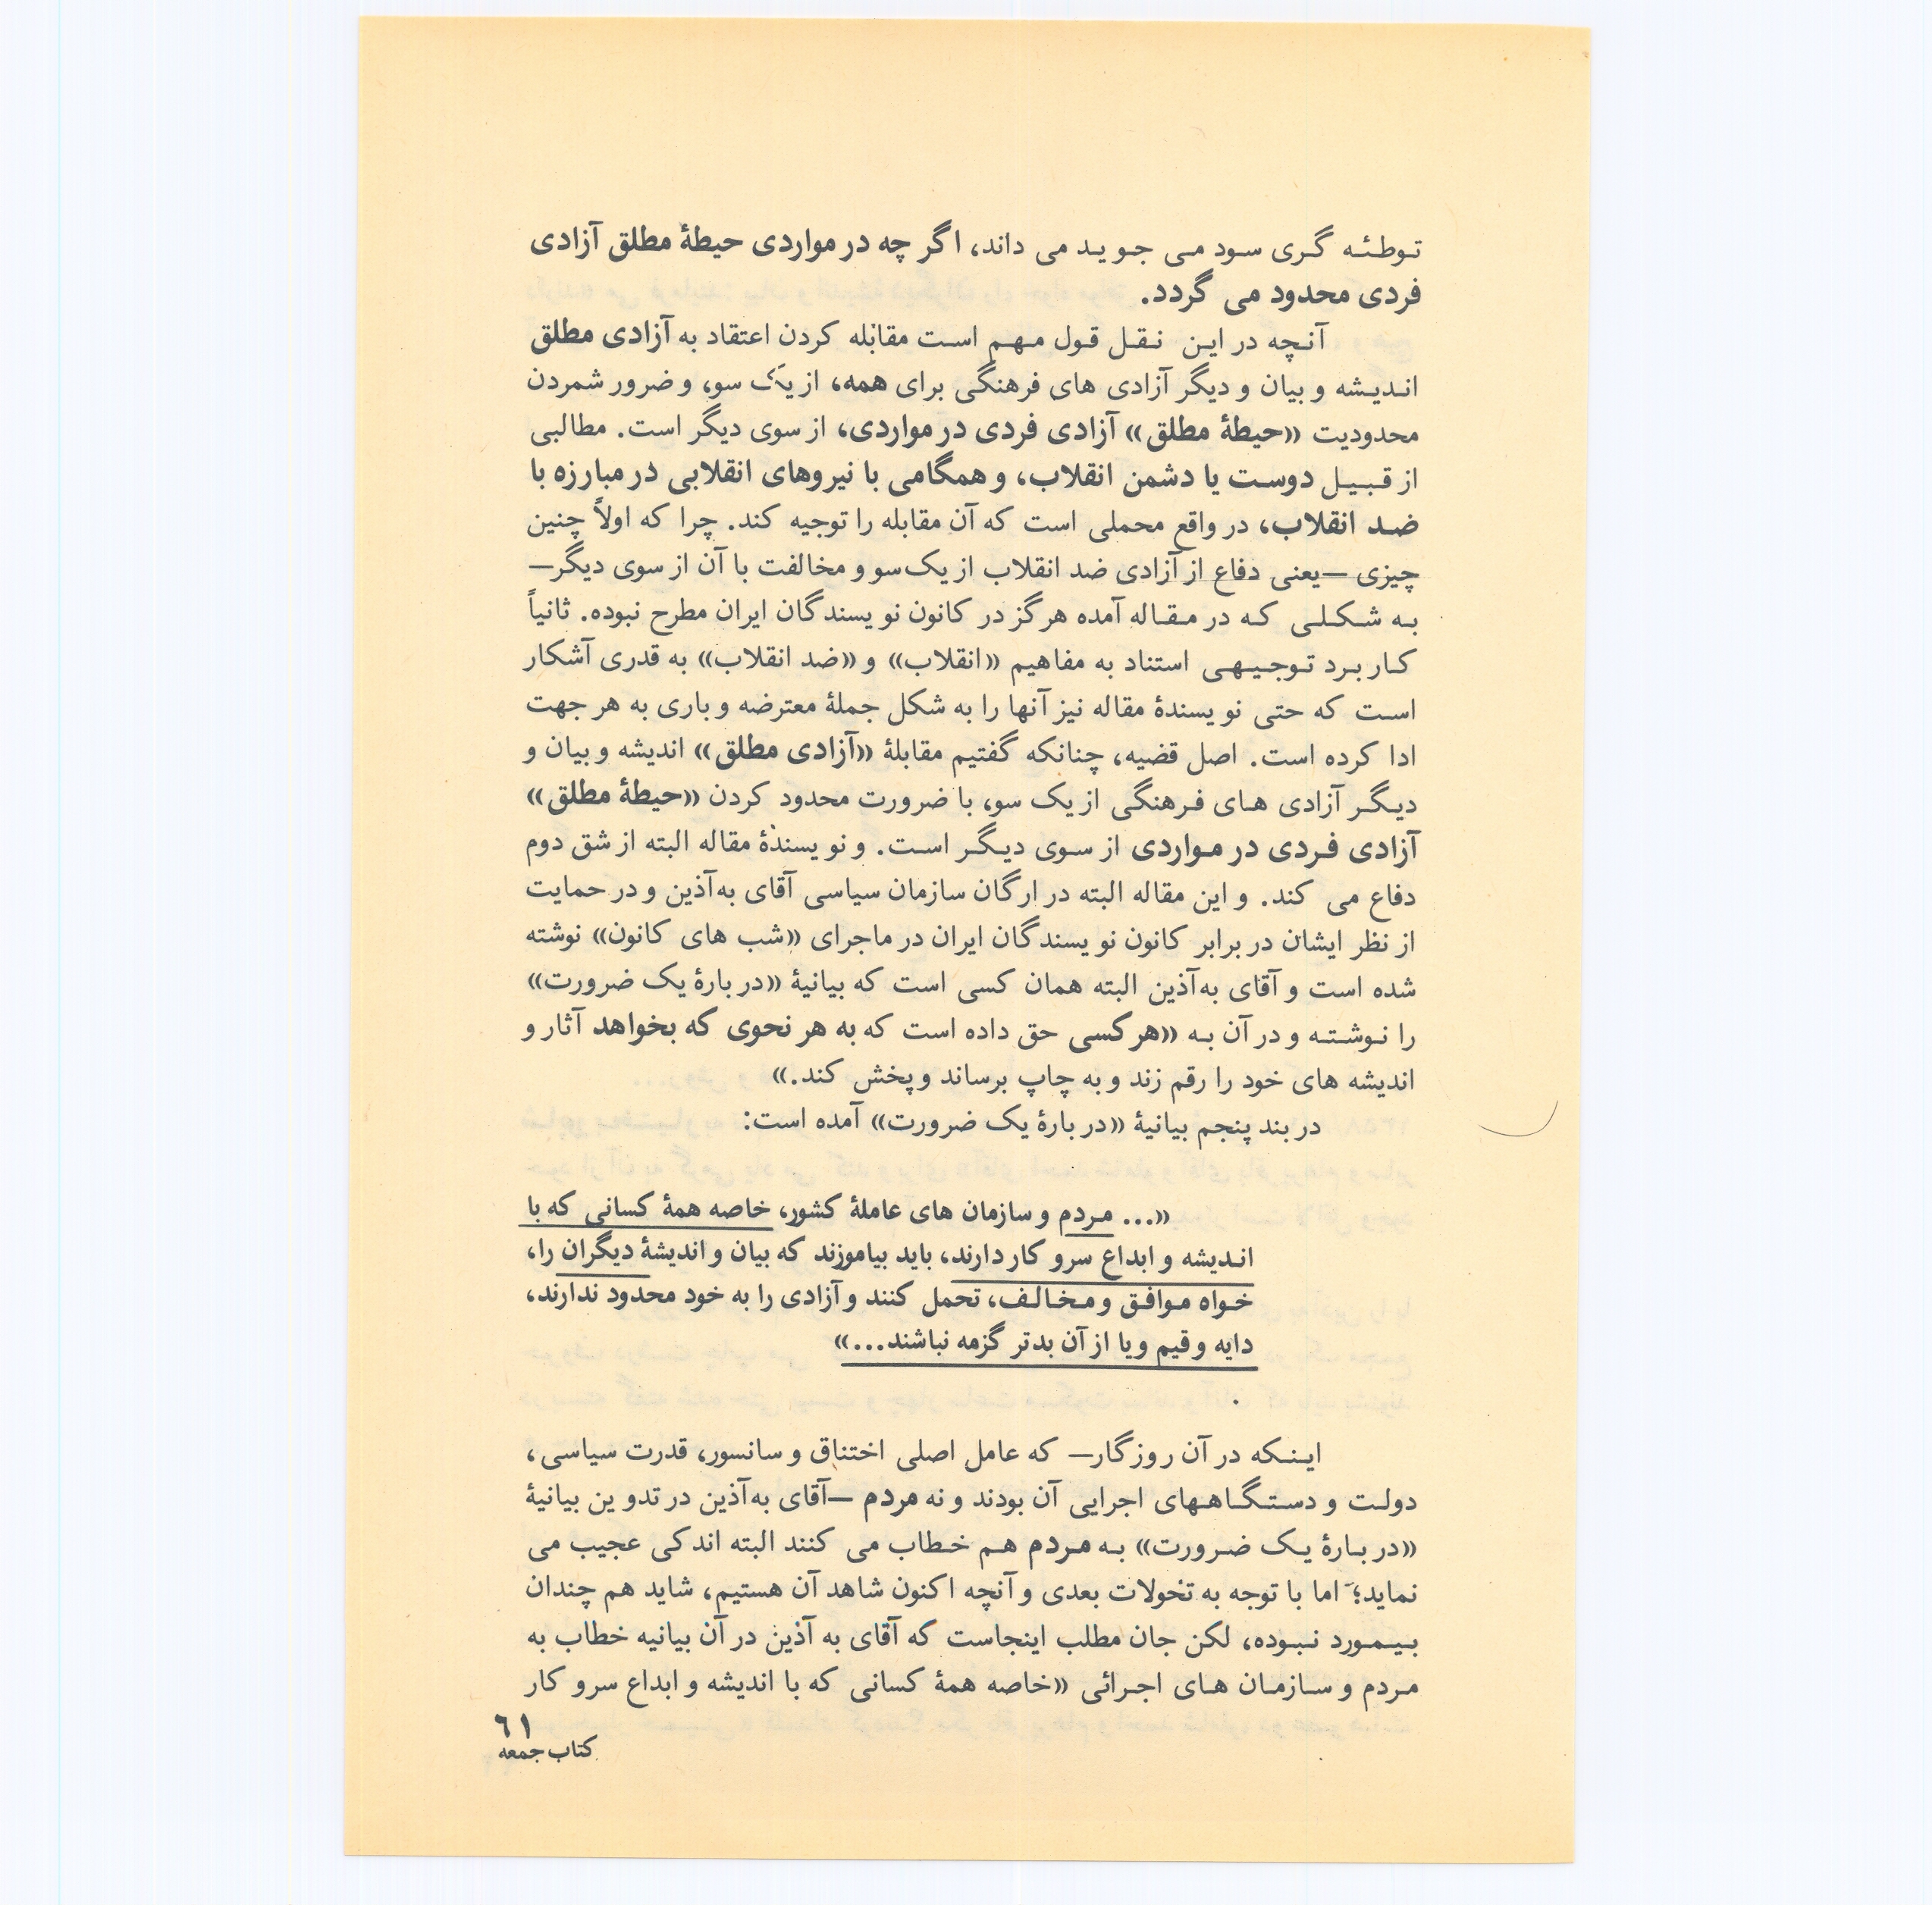 توطئه گری سود می جوید می داند، اگر چه در مواردی حیطهٔ مطلق آزادی
فردی محدود می گردد.
آنچه در این نقل قول مهم است مقابله کردن اعتقاد به آزادی مطلق
اندیشه و بیان و دیگر آزادی های فرهنگی برای همه، از یک سو، و ضرور شمردن
محدودیت «حیطهٔ مطلق» آزادی فردی در مواردی، از سوی دیگر است. مطالبی
از قبیل دوست یا دشمن انقلاب، و همگامی با نیروهای انقلابی در مبارزه با
ضد انقلاب، در واقع محملی است که آن مقابله را توجیه کند. چرا که اولاً چنین
چیزی —یعنی دفاع از آزادی ضد انقلاب از یک سو و مخالفت با آن از سوی دیگر—
به شکلی که در مقاله آمده هرگز در کانون نویسندگان ایران مطرح نبوده. ثانیاً
کاربرد توجیهی استناد به مفاهیم «انقلاب» و «ضد انقلاب» به قدری آشکار
است که حتی نویسندهٔ مقاله نیز آنها را به شکل جملهٔ معترضه و باری به هر جهت
ادا کرده است. اصل قضیه، چنانکه گفتیم مقابلهٔ «آزادی مطلق» اندیشه و بیان و
دیگر آزادی های فرهنگی از یک سو، با ضرورت محدود کردن «حیطهٔ مطلق»
آزادی فردی در مواردی از سوی دیگر است. و نویسندهٔ مقاله البته از شق دوم
دفاع می کند. و این مقاله البته در ارگان سازمان سیاسی آقای به‌آذین و در حمایت
از نظر ایشان در برابر کانون نویسندگان ایران در ماجرای «شب های کانون» نوشته
شده است و آقای به‌آذین البته همان کسی است که بیانیهٔ «در بارهٔ یک ضرورت»
را نوشته و در آن به «هر کسی حق داده است که به هر نحوی که بخواهد آثار و
اندیشه های خود را رقم زند و به چاپ برساند و پخش کند.»
در بند پنجم بیانیهٔ «در بارهٔ یک ضرورت» آمده است:
«... مردم و سازمان های عاملهٔ کشور، خاصه همهٔ کسانی که با
اندیشه و ابداع سرو کار دارند، باید بیاموزند که بیان و اندیشهٔ دیگران را،
خواه موافق و مخالف، تحمل کنند و آزادی را به خود محدود ندارند،
دایه و قیم و یا از آن بدتر گزمه نباشند...»
اینکه در آن روزگار— که عامل اصلی اختناق و سانسور، قدرت سیاسی،
دولت و دستگاههای اجرایی آن بودند و نه مردم —آقای به‌آذین در تدوین بیانیهٔ
«در بارهٔ یک ضرورت» به مردم هم خطاب می کنند البته اندکی عجیب می
نماید؛ اما با توجه به تحولات بعدی و آنچه اکنون شاهد آن هستیم، شاید هم چندان
بیمورد نبوده، لکن جان مطلب اینجاست که آقای به آذین در آن بیانیه خطاب به
مردم و سازمان های اجرائی «خاصه همهٔ کسانی که با اندیشه و ابداع سرو کار
۶۱
کتاب جمعه